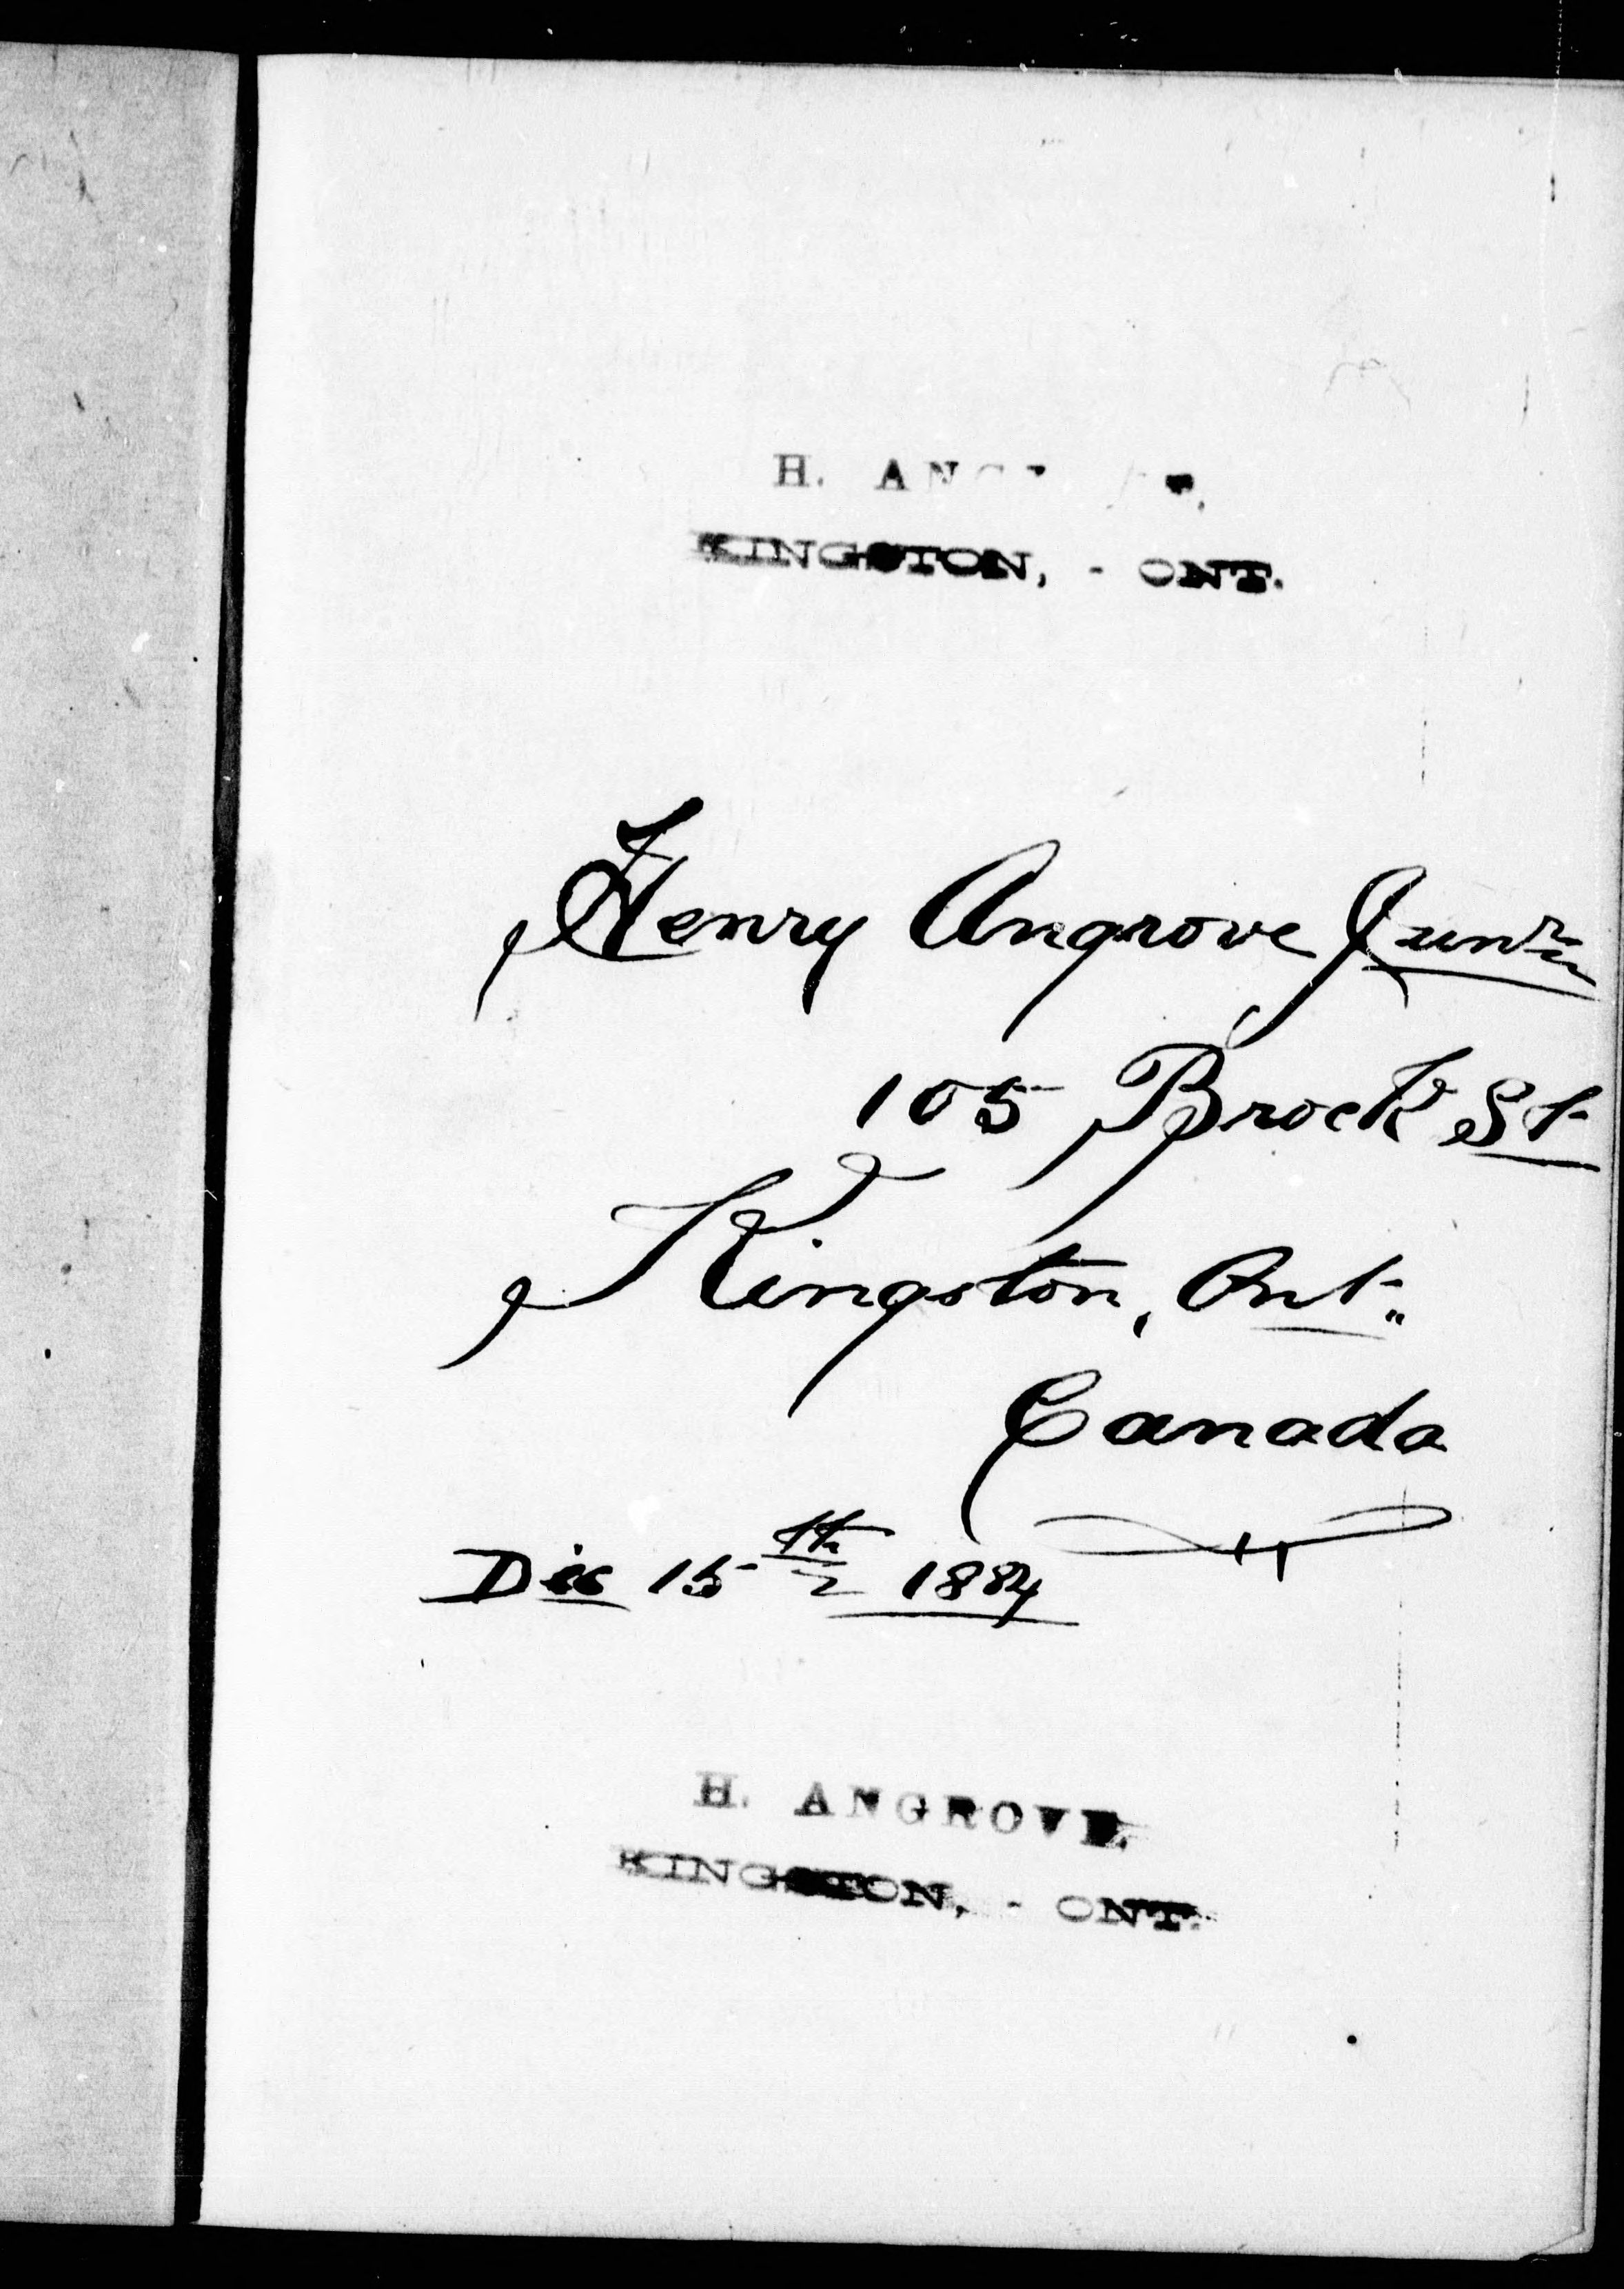 H.
KINGSTON, - ONT.
Henry Angrove Junr
105 Brock St
Kingston, Ont.
Canada
Dec 15th 1884
H. ANGROVE,
KINGSTON, - ONT.